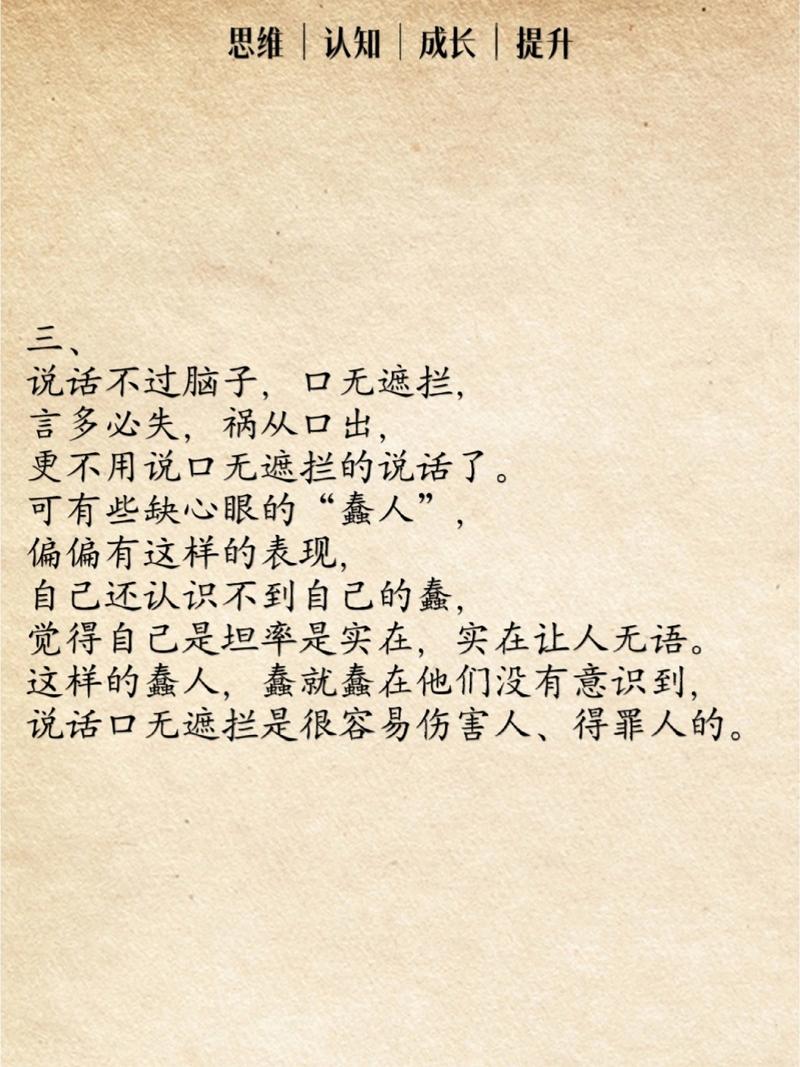 思维｜认知｜成长｜提升
三、
说话不过脑子，口无遮拦，
言多必失，祸从口出，
更不用说口无遮拦的说话了。
可有些缺心眼的“蠢人”，
偏偏有这样的表现，
自己还认识不到自己的蠢，
觉得自己是坦率是实在，实在让人无语。
这样的蠢人，蠢就蠢在他们没有意识到，
说话口无遮拦是很容易伤害人、得罪人的。